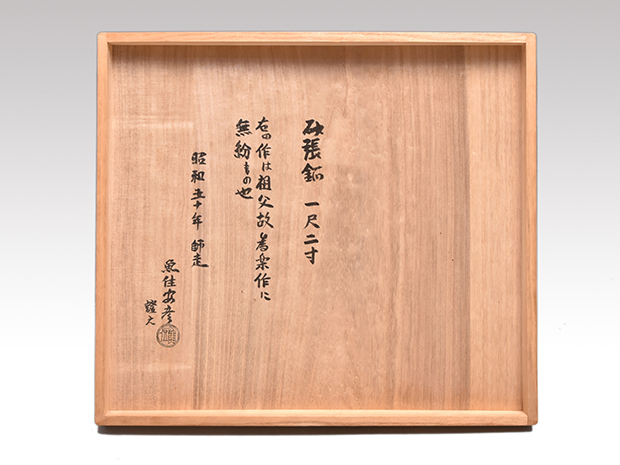 砂張鉦 一尺二寸
右の作は祖父故為楽作に
無紛もの也
昭和五十年 師走
魚住安彦